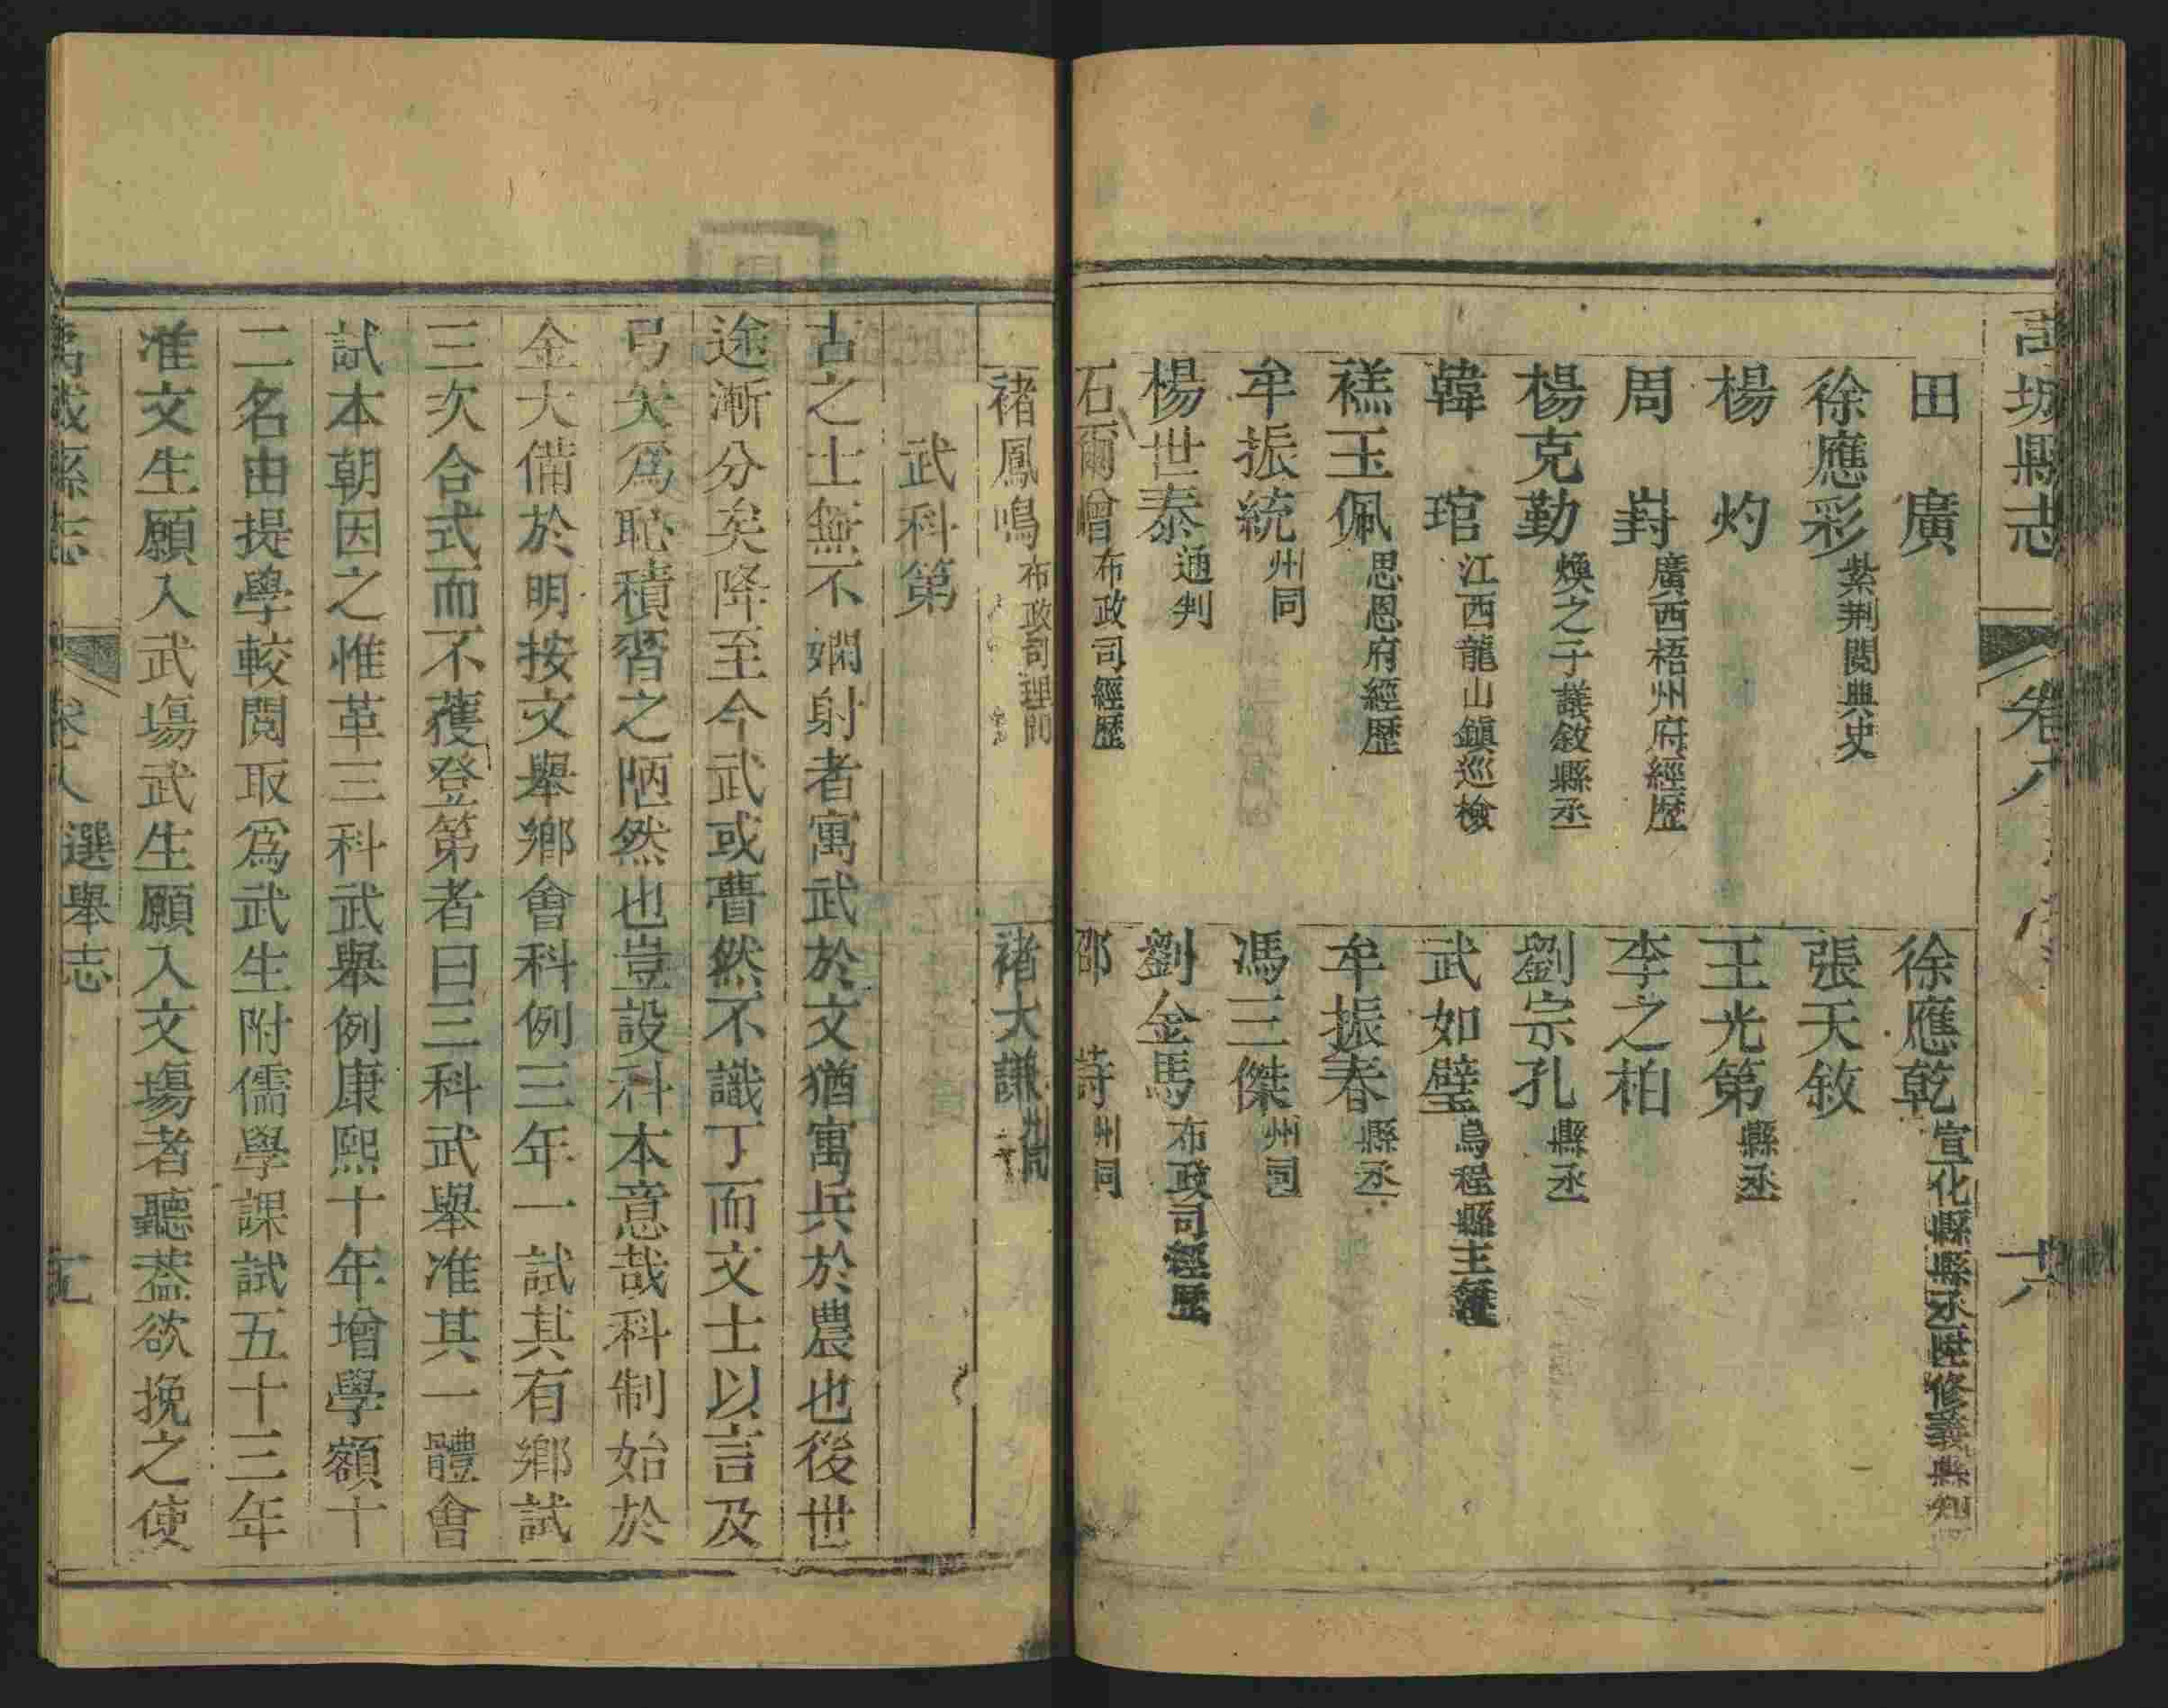 禹城縣志
卷八
十六
田廣
徐應乾 宣化縣縣丞陞修義縣知
徐應彩 紫荆関典史
張天敘
楊灼
王光第 縣丞
周㞳 廣西梧州府經歷
李之柏
楊克勤 煥之子議敘縣丞
劉宗孔 縣丞
韓琯 江西龍山鎮巡檢
武如璧 烏程縣主簿
禚玉佩 思恩府經歷
牟振春 縣丞
牟振統 州同
馮三傑 州同
楊世泰 通判
劉金馬 布政司經歷
石爾 布政司經歷
邵詩 州同
褚鳳鳴 布政司理問
褚大謙 州同
武科第
古之士無不嫻射者寓武於文猶寓兵於農也後世
途漸分矣降至今武或瞢然不識丁而文士以言及
弓矢爲恥積習之陋然也豈設科本意哉科制始於
金大備於明按文舉鄉會科例三年一試其有鄉試
三次合式而不獲登第者曰三科武舉准其一體會
試本朝因之惟革三科武舉例康熙十年增學額十
二名由提學較閲取爲武生附儒學課試五十三年
准文生願入武塲武生願入文塲者聽葢欲挽之使
禹城縣志
卷八 選舉志